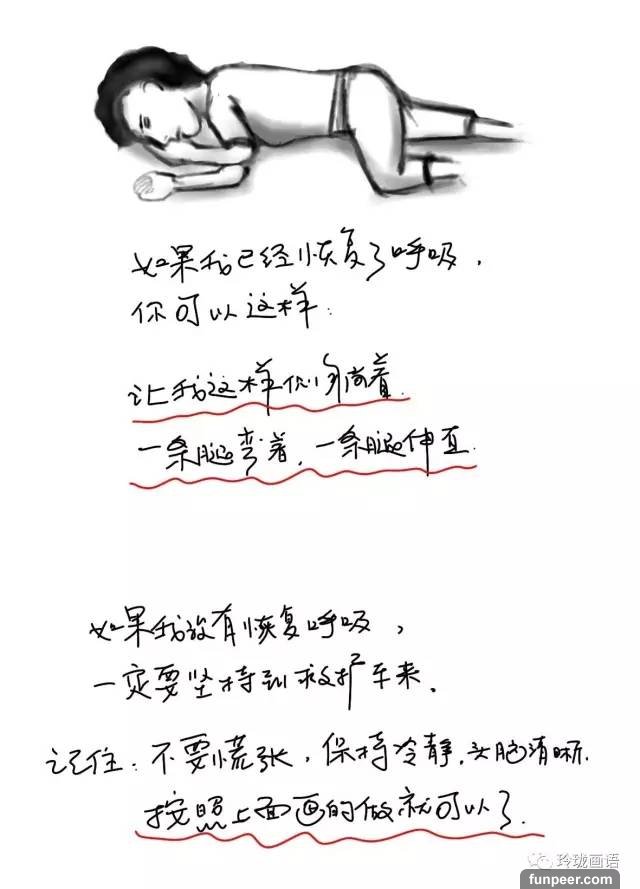 如果我已经恢复了呼吸，
你可以这样：
让我这样侧躺着.
一条腿弯着，一条腿伸直.
如果我没有恢复呼吸，
一定要坚持到救护车来.
记住：不要慌张，保持冷静，头脑清晰.
按照上面画的做就可以了.
玲珑画语
funpeer.com